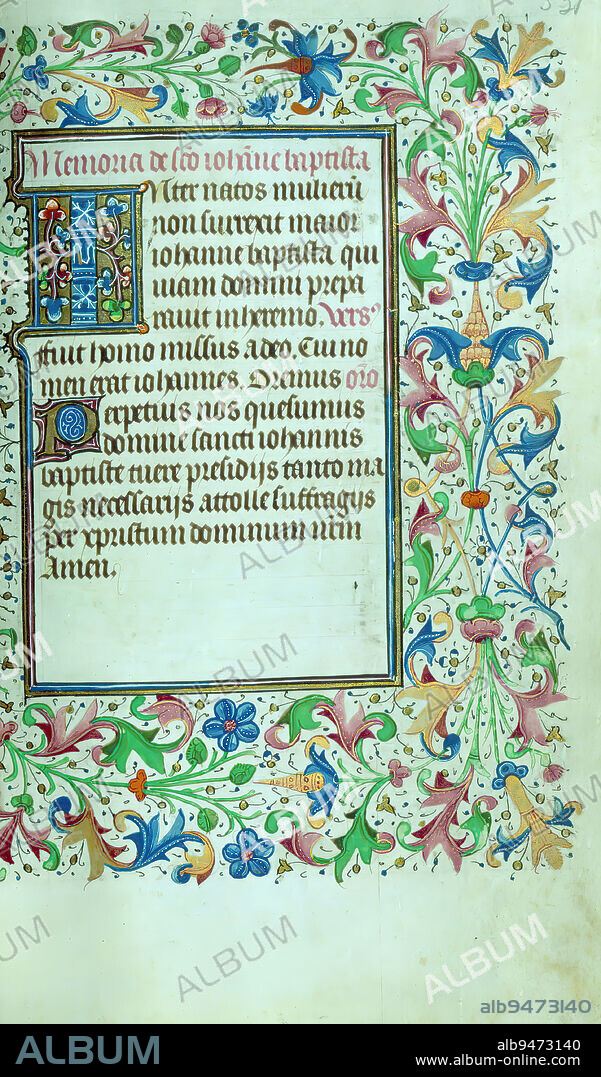 Memoria de sco ioha̅ne baptista
Inter natos mulieru̅
non surrexit maior
iohanne baptista qui
uiam domini prepa
rauit in heremo. Vers9
ffuit homo missus a deo. Cui no
men erat iohannes. Oremus or̅o
Perpetuis nos quesumus
domine sancti iohannis
baptiste tuere presidijs tanto ma
gis necessarijs attolle suffragijs
per xpristum dominum nr̅m
Amen.
ALBUM
alb9473140
ALBUM
alb9473140
www.album-online.com